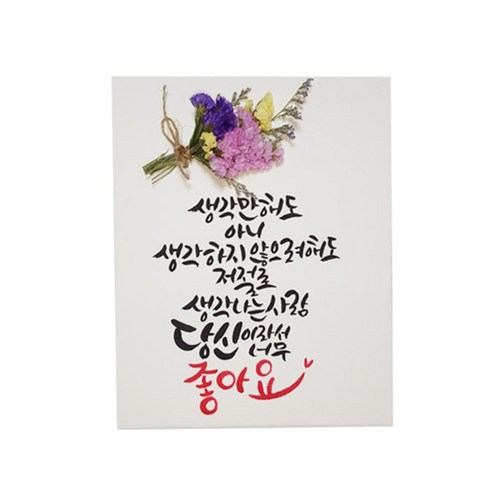 생각만해도
아니
생각하지 않으려해도
저절로
생각나는사람
당신이라서
너무
좋아요